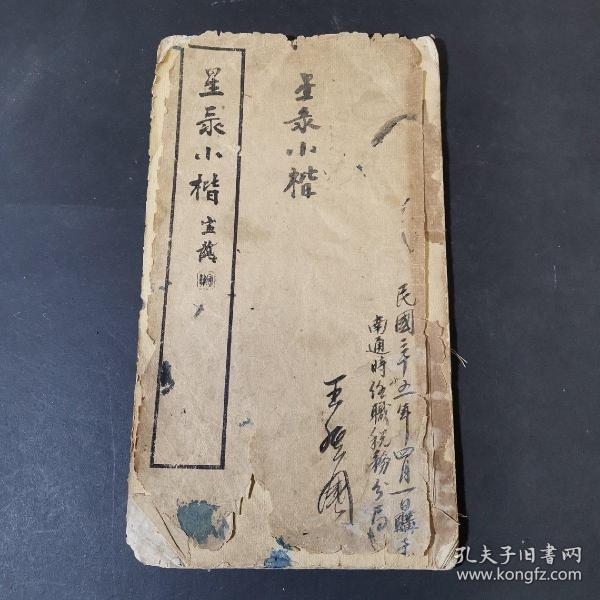 民國三十五年四月一日購于
南通時任職稅務分局
王
國
星彔小楷
星彔小楷
孔夫子旧书网
www.kongfz.com